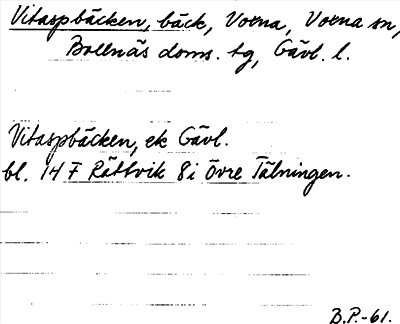 Vitaspbäcken, bäck, Voxna, Voxna sn,
Bollnäs doms. tg, Gävl. l.
Vitaspbäcken, ek Gävl.
bl. 14 F Rättvik 8 i Övre Tälningen.
B.P.-61.